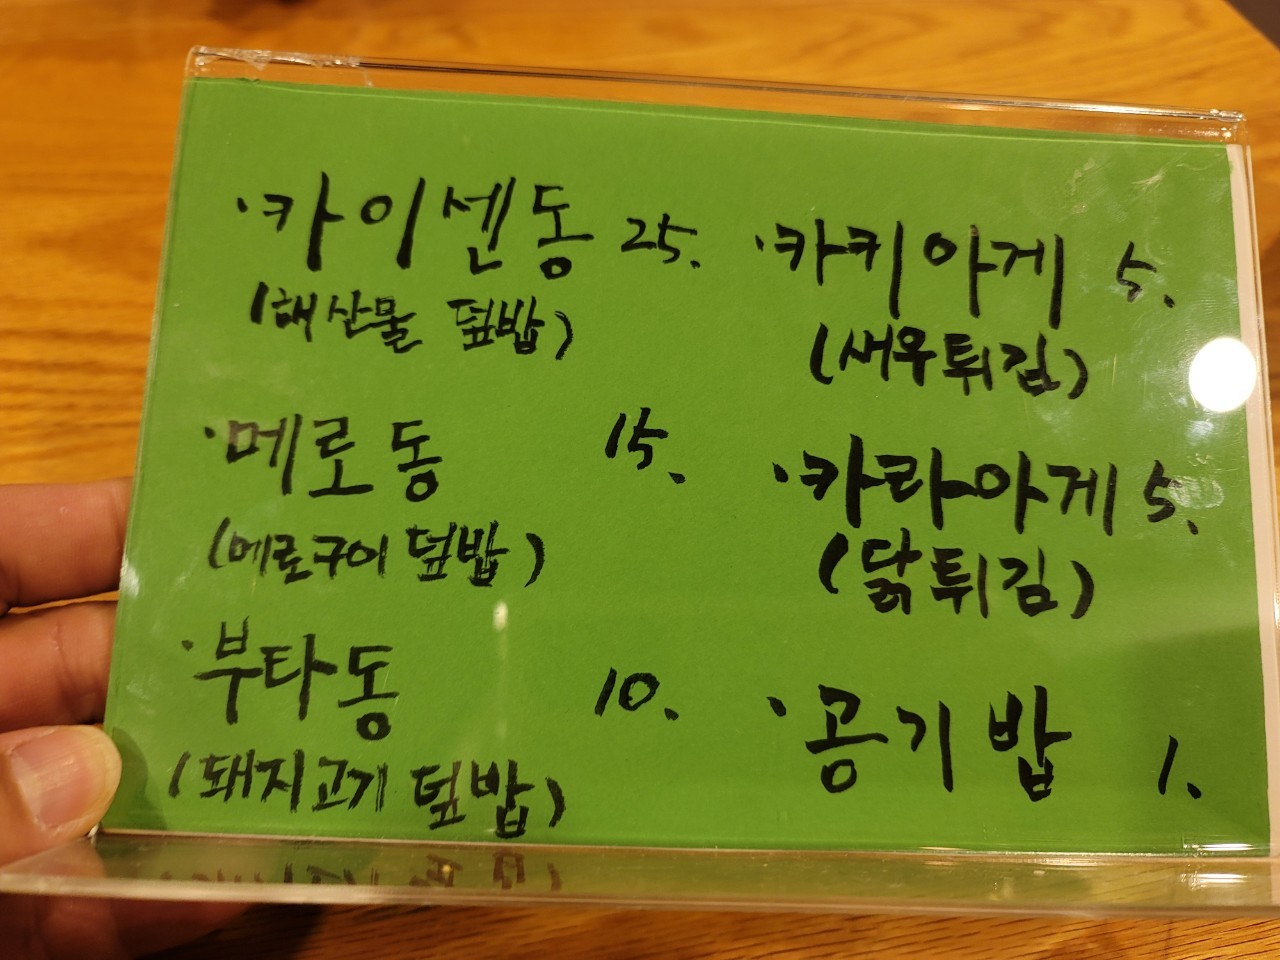 ·카이센동 25.
(해산물 덮밥)
·메로동 15.
(메로구이 덮밥)
·부타동 10.
(돼지고기 덮밥)
·카키아게 5.
(새우튀김)
·카라아게 5.
(닭튀김)
·공기밥 1.